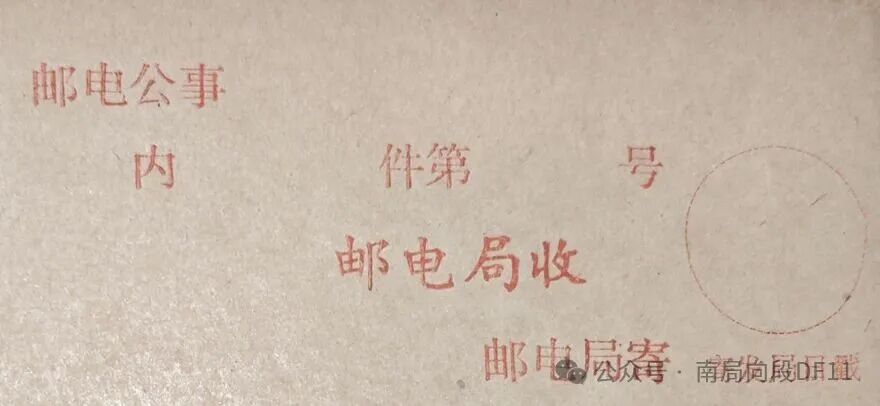 邮电公事
内 件第 号
邮电局收
邮电局寄
公众号·南局向段DF11